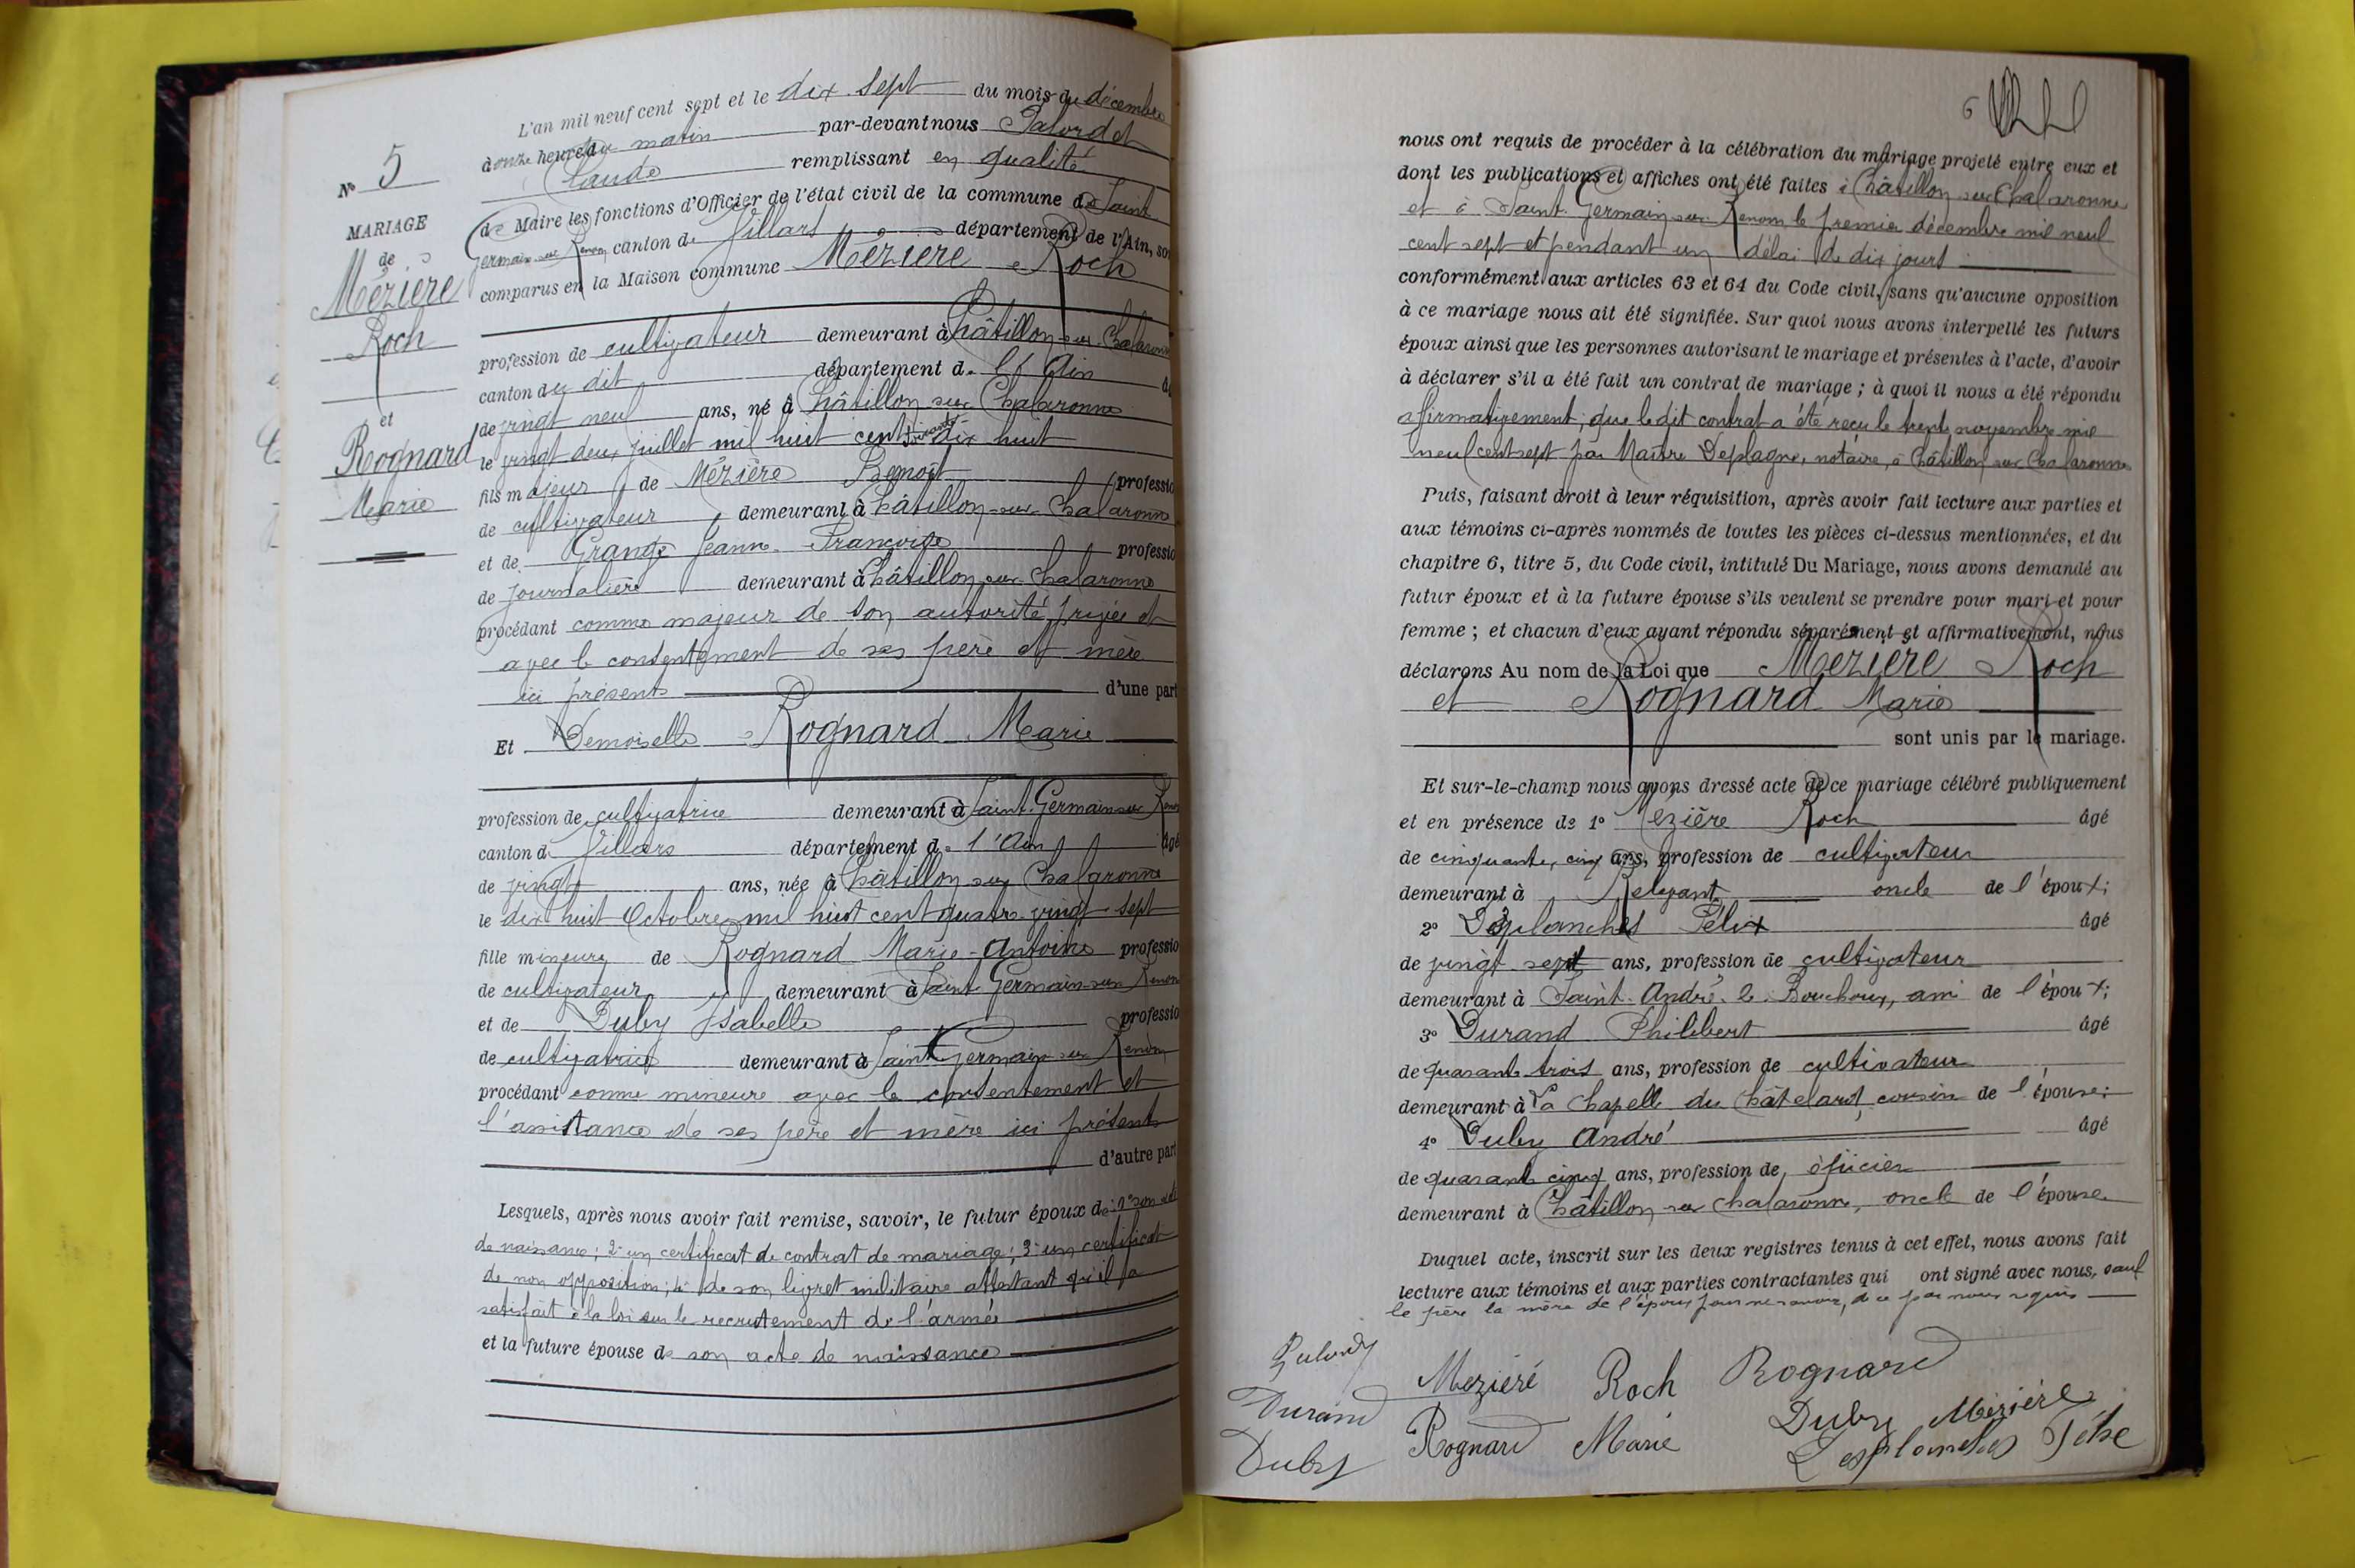 L'an mil neuf cent sept et le dix sept du mois de décembre
à onze heures du matin par-devant nous
Claude remplissant en qualité
de Maire les fonctions d'Officier de l'état civil de la commune de Saint
Germain sur Renom canton de Villars département de l'Ain, son
comparus en la Maison commune Mézière Roch
N° 5
MARIAGE
de
Mézière
Roch
et
Rognard
Marie
profession de cultivateur demeurant à Châtillon sur Chalaronne
canton du dit département de l'Ain
de vingt neuf ans, né à Châtillon sur Chalaronne
le vingt deux juillet mil huit cent soixante dix huit
fils majeur de Mézière Benoît professio
de cultivateur demeurant à Châtillon sur Chalaronne
et de Grange Jeanne Françoise professio
de journalière demeurant à Châtillon sur Chalaronne
procédant comme majeur de son autorité privée et
avec le consentement de ses père et mère
ici présents d'une part
Et Demoiselle Rognard Marie
profession de cultivatrice demeurant à Saint Germain sur Renom
canton de Villars département de l'Ain âgé
de vingt ans, née à Châtillon sur Chalaronne
le dix huit Octobre mil huit cent quatre vingt sept
fille mineure de Rognard Marie-Antoine professio
de cultivateur demeurant à Saint Germain sur Renom
et de Duby Isabelle professio
de cultivatrice demeurant à Saint Germain sur Renom
procédant comme mineure avec le consentement et
l'assistance de ses père et mère ici présents
d'autre part
Lesquels, après nous avoir fait remise, savoir, le futur époux de 1° son acte
de naissance; 2° un certificat de contrat de mariage; 3° un certificat
de non opposition; 4° de son livret militaire attestant qu'il a
satisfait à la loi sur le recrutement de l'armée
et la future épouse de son acte de naissance
6
nous ont requis de procéder à la célébration du mariage projeté entre eux et
dont les publications et affiches ont été faites à Châtillon sur Chalaronne
et à Saint Germain sur Renom le premier décembre mil neuf
cent sept et pendant un délai de dix jours
conformément aux articles 63 et 64 du Code civil, sans qu'aucune opposition
à ce mariage nous ait été signifiée. Sur quoi nous avons interpellé les futurs
époux ainsi que les personnes autorisant le mariage et présentes à l'acte, d'avoir
à déclarer s'il a été fait un contrat de mariage; à quoi il nous a été répondu
affirmativement; que le dit contrat a été reçu le trente novembre mil
neuf cent sept par Maître Deplagne, notaire, à Châtillon sur Chalaronne
Puis, faisant droit à leur réquisition, après avoir fait lecture aux parties et
aux témoins ci-après nommés de toutes les pièces ci-dessus mentionnées, et du
chapitre 6, titre 5, du Code civil, intitulé Du Mariage, nous avons demandé au
futur époux et à la future épouse s'ils veulent se prendre pour mari et pour
femme; et chacun d'eux ayant répondu séparément et affirmativement, nous
déclarons Au nom de la Loi que Mézière Roch
et Rognard Marie
sont unis par le mariage.
Et sur-le-champ nous avons dressé acte de ce mariage célébré publiquement
et en présence de 1° Mézière Roch âgé
de cinquante, cinq ans, profession de cultivateur
demeurant à Relevant oncle de l'époux;
2° Desplanches Félix âgé
de vingt sept ans, profession de cultivateur
demeurant à Saint André le Bouchoux, ami de l'époux;
3° Durand Philibert âgé
de quarante trois ans, profession de cultivateur
demeurant à La Chapelle du Châtelard, cousin de l'épouse;
4° Duby André âgé
de quarante cinq ans, profession de épicier
demeurant à Châtillon sur Chalaronne, oncle de l'épouse
Duquel acte, inscrit sur les deux registres tenus à cet effet, nous avons fait
lecture aux témoins et aux parties contractantes qui ont signé avec nous, sauf
le père la mère de l'époux pour ne savoir, de ce par nous requis
Mezière Roch Rognard
Durand Rognard Marie Duby Mézière
Duby Desplanches Félix